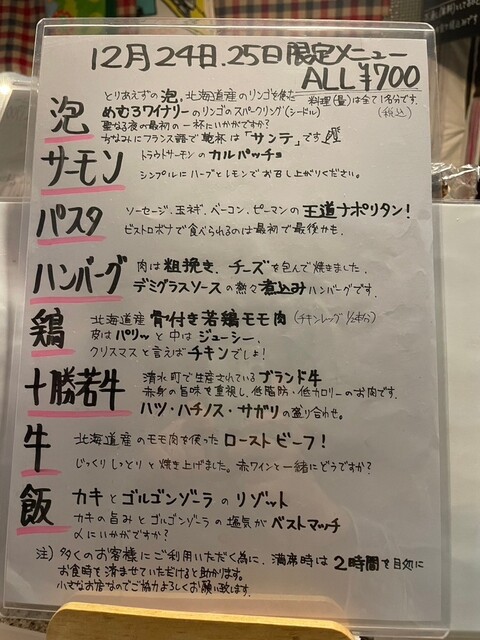 12月24日.25日限定メニュー
ALL ¥700
泡
とりあえずの泡。北海道産のリンゴを使った
料理(量)は全て1名分です。
めむろワイナリーのリンゴのスパークリング(シードル)
(税込)
聖なる夜の最初の一杯にいかがですか?
ちなみにフランス語で乾杯は「サンテ」です
サーモン
トラウトサーモンのカルパッチョ
シンプルにハーブとレモンでお召し上がりください。
パスタ
ソーセージ、玉ネギ、ベーコン、ピーマンの王道ナポリタン!
ビストロボナで食べられるのは最初で最後かも。
ハンバーグ
肉は粗挽き、チーズを包んで焼きました。
デミグラスソースの熱々煮込みハンバーグです。
鶏
北海道産 骨付き若鶏モモ肉(チキンレッグ 1/2本分)
皮はパリッと中はジューシー、
クリスマスと言えばチキンでしょ!
十勝若牛
清水町で生産されているブランド牛
赤身の旨味を重視し、低脂肪・低カロリーのお肉です。
ハツ・ハチノス・サガリの盛り合わせ。
牛
北海道産のモモ肉を使ったローストビーフ!
じっくりしっとりと焼き上げました。赤ワインと一緒にどうですか?
飯
カキとゴルゴンゾーラのリゾット
カキの旨みとゴルゴンゾーラの塩気がベストマッチ
〆にいかがですか?
注)多くのお客様にご利用いただく為に、満席時は2時間を目処に
お食事を済ませていただけると助かります。
小さなお店なのでご協力よろしくお願い致します。